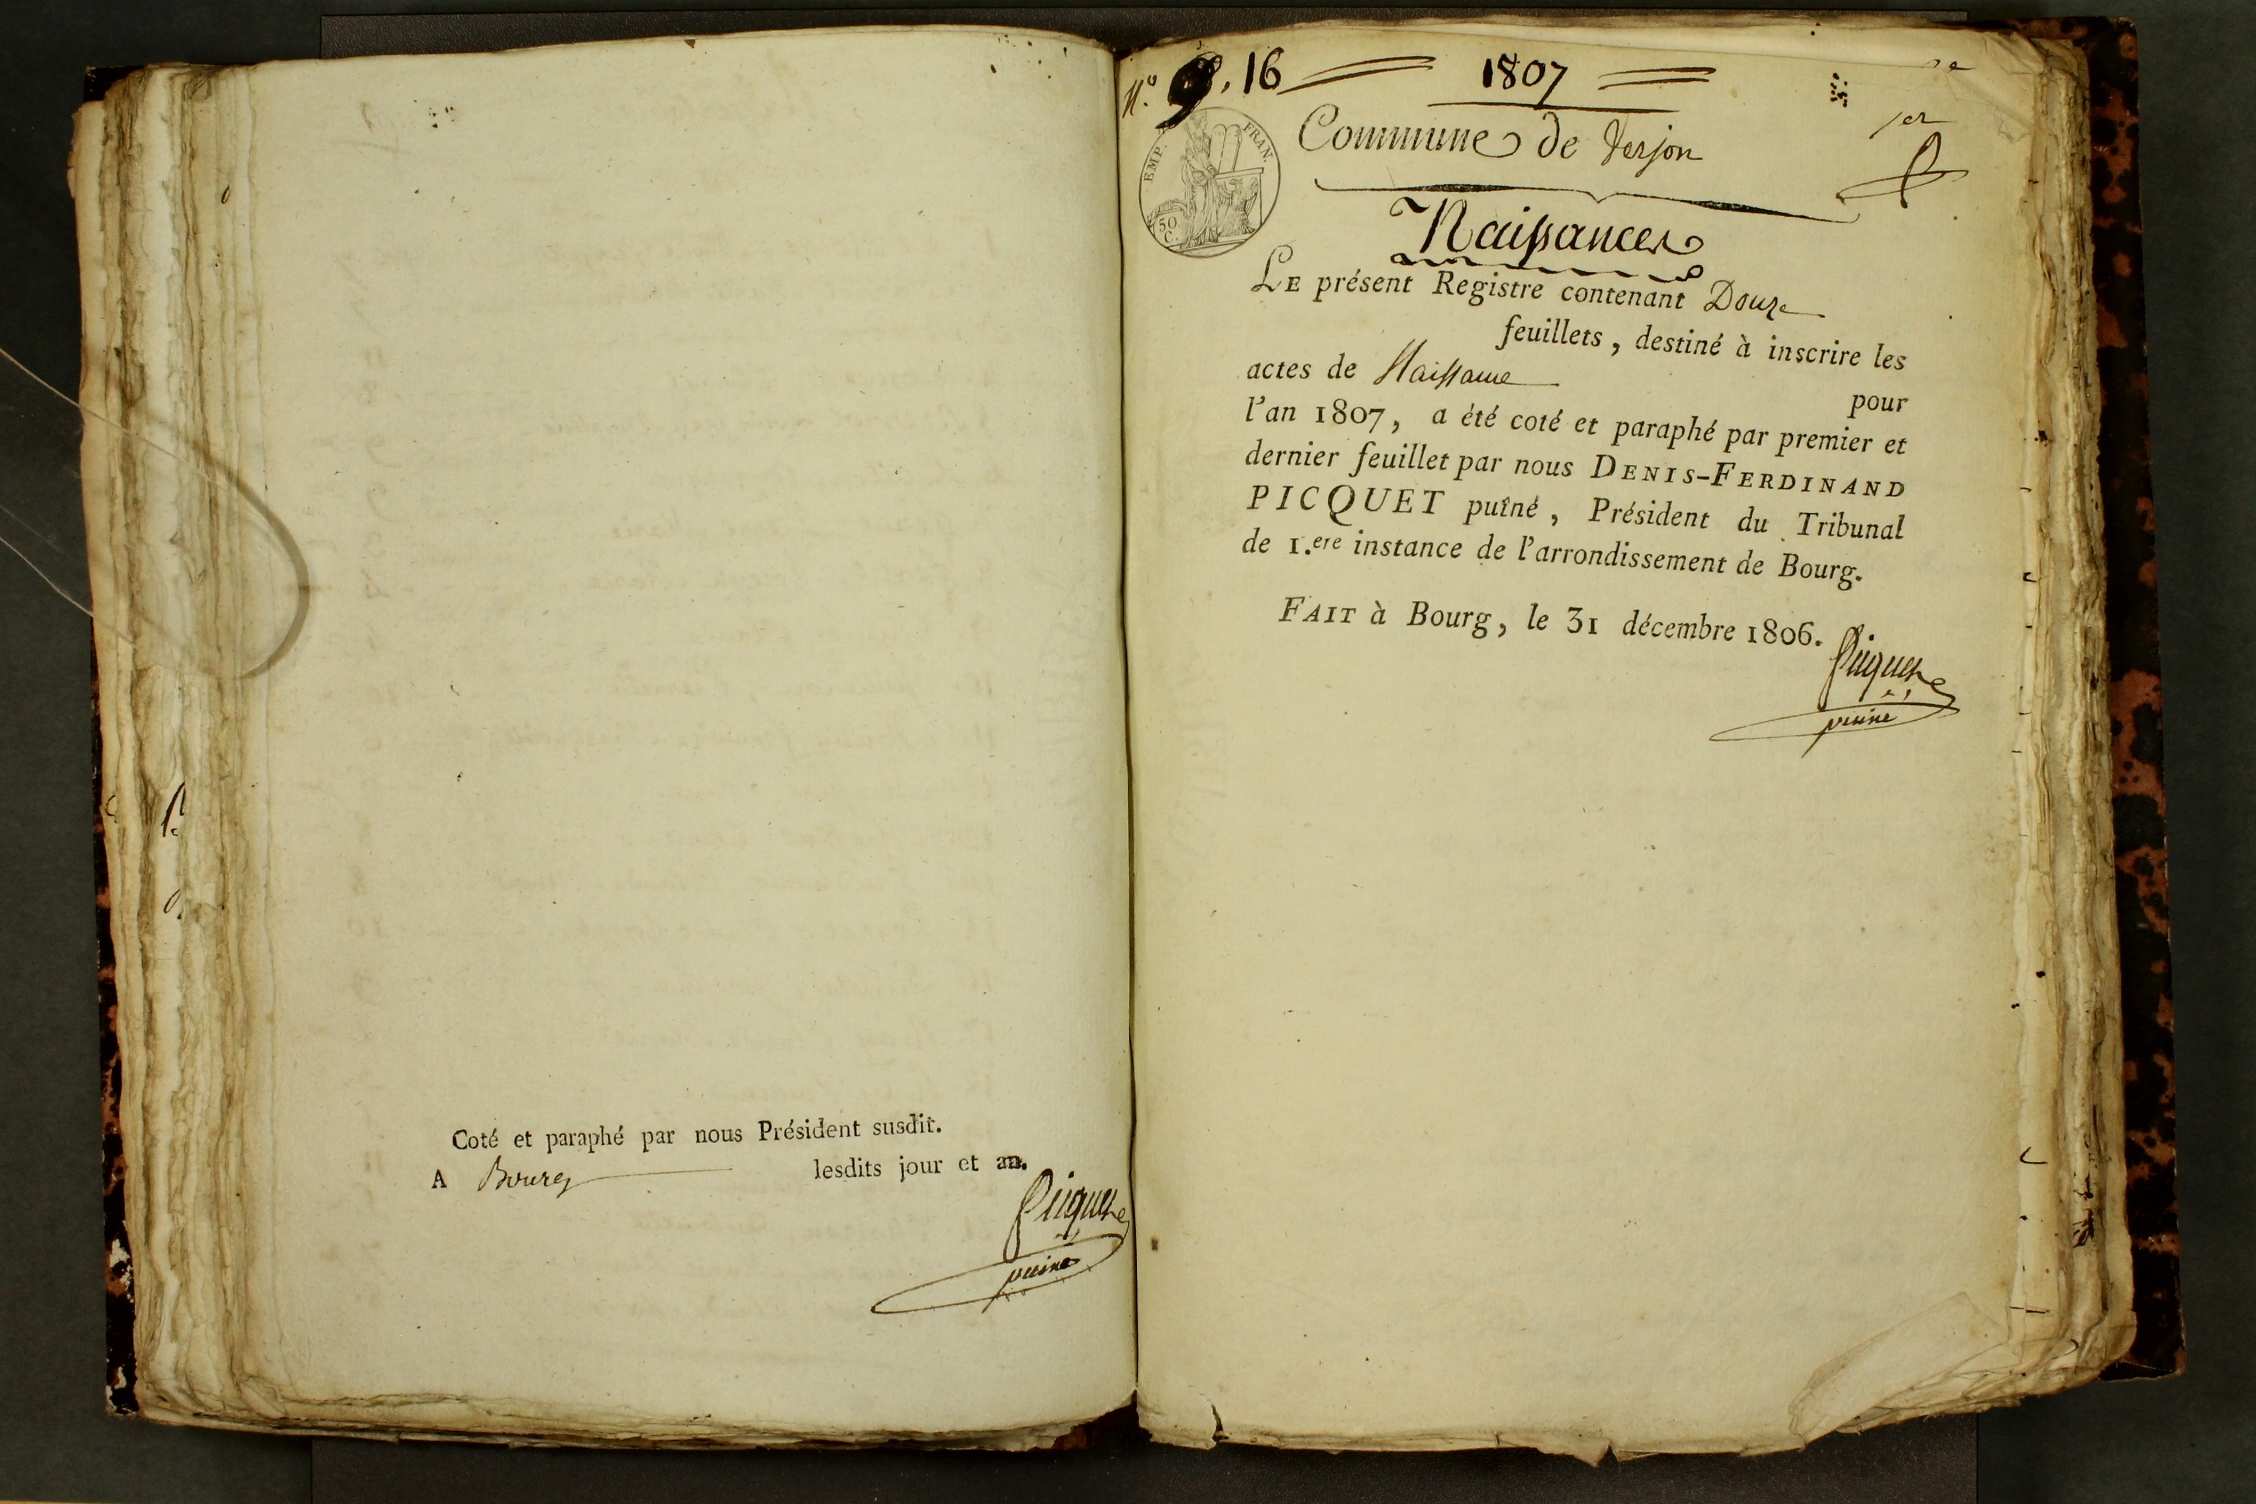 Coté et paraphé par nous Président susdit.
A Bourg lesdits jour et an.
Picquet
puiné
N.º 16 1807
1er
EMP. FRAN.
50 C.
Commune de Verjon
Naissances
LE présent Registre contenant Douze
feuillets, destiné à inscrire les
actes de Naissance
pour
l'an 1807, a été coté et paraphé par premier et
dernier feuillet par nous DENIS-FERDINAND
PICQUET puîné, Président du Tribunal
de 1.ere instance de l'arrondissement de Bourg.
FAIT à Bourg, le 31 décembre 1806.
Picquet
puiné